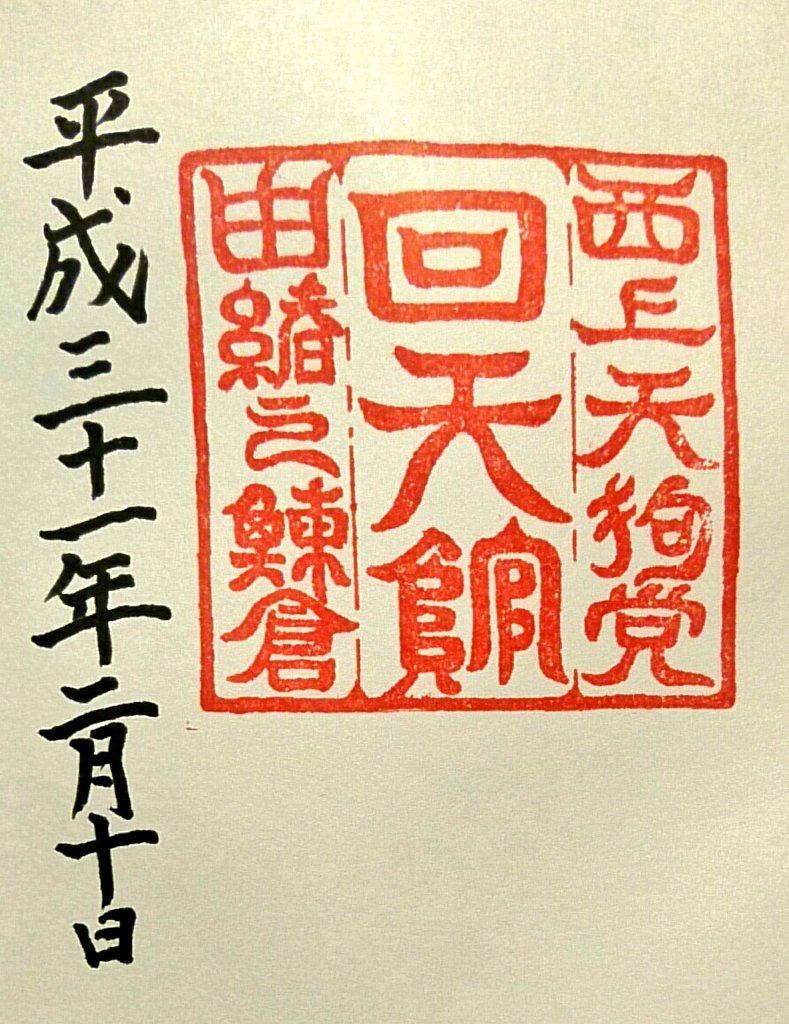 西上天狗党
回天館
由緒之鰊倉
平成三十一年二月十日